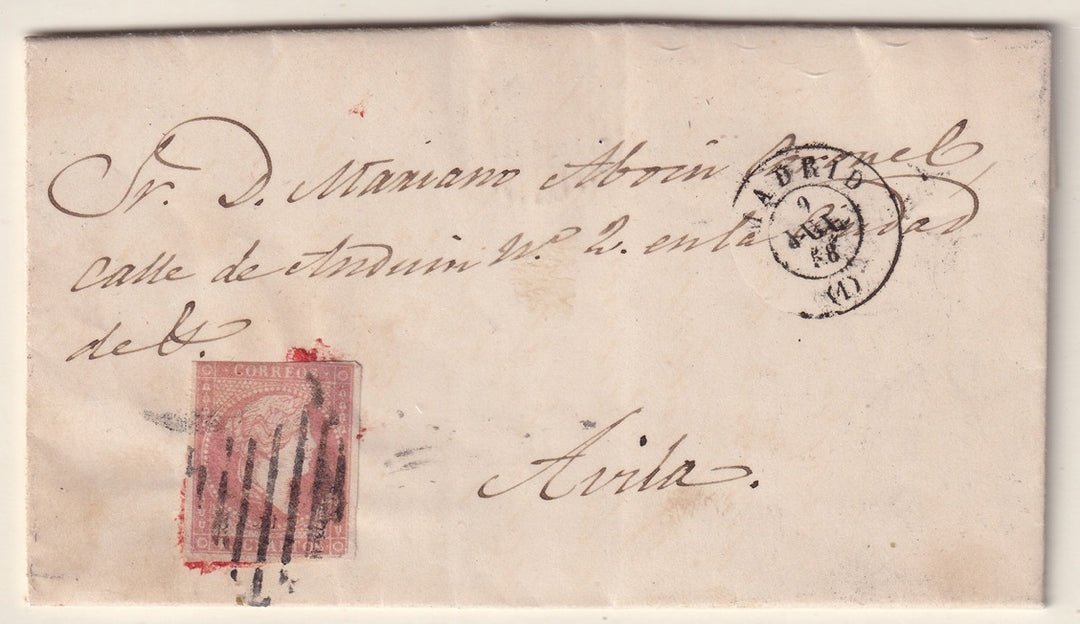 Sr. D. Mariano Aboin Coronel,
calle de Andrin nº 2. en la Ciudad
de
Avila.
MADRID
9
JUL.
56
(1)
CORREOS
CUARTOS